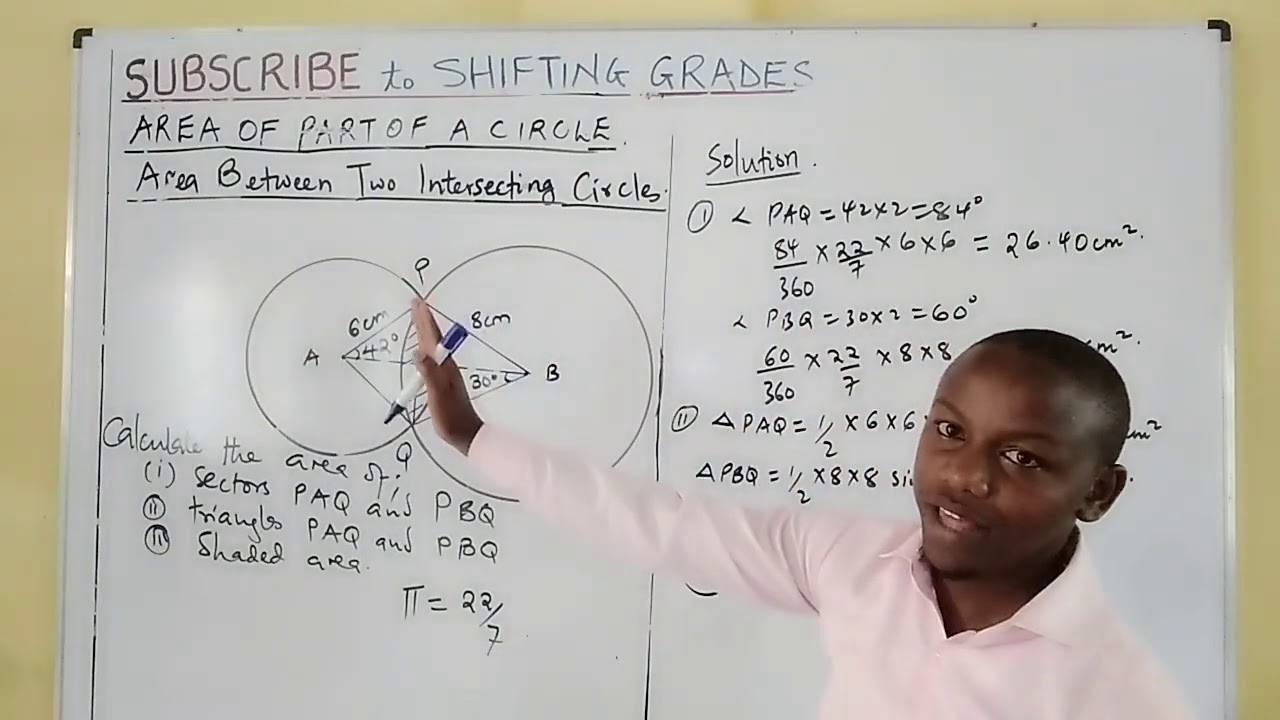 SUBSCRIBE to SHIFTING GRADES
AREA OF PART OF A CIRCLE.
Area Between Two Intersecting Circles.
P
6cm
8cm
A
42°
30°
B
Q
Calculate the area of:
(i) Sectors PAQ and PBQ
(ii) triangles PAQ and PBQ
(iii) Shaded area.
π = 22/7
Solution.
(i) < PAQ = 42×2 = 84°
84/360 × 22/7 × 6 × 6 = 26.40cm².
< PBQ = 30×2 = 60°
60/360 × 22/7 × 8 × 8 cm².
(ii) △ PAQ = 1/2 × 6 × 6 cm²
△ PBQ = 1/2 × 8 × 8